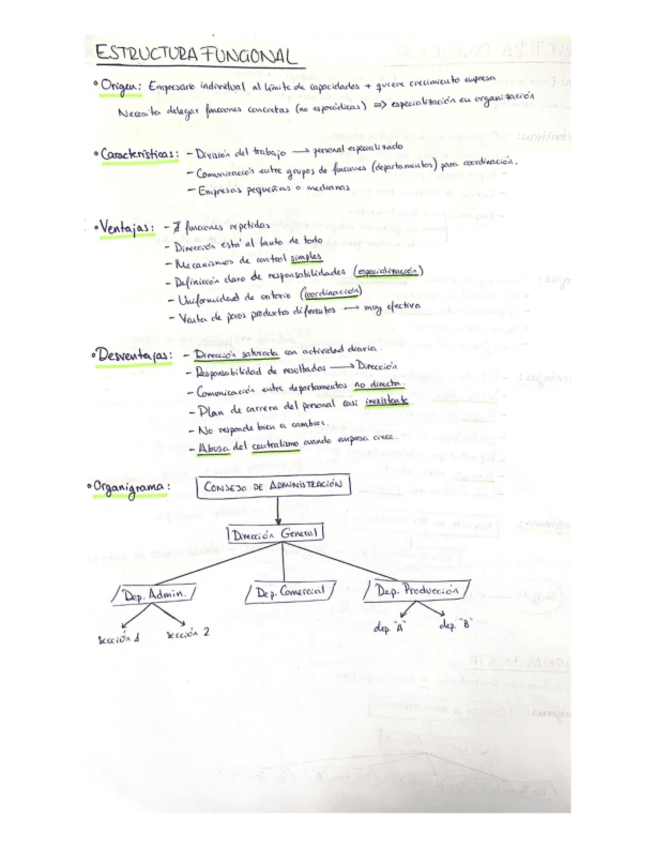 ESTRUCTURA FUNCIONAL
• Origen: Empresario individual al límite de capacidades + quiere crecimiento empresa
Necesita delegar funciones concretas (no esporádicas) => especialización en organización
• Características: - División del trabajo → personal especializado
- Comunicación entre grupos de funciones (departamentos) para coordinación.
- Empresas pequeñas o medianas
• Ventajas: - ∄ funciones repetidas
- Dirección está al tanto de todo
- Mecanismos de control simples
- Definición clara de responsabilidades (especialización)
- Uniformidad de criterio (coordinación)
- Venta de pocos productos diferentes → muy efectiva
• Desventajas: - Dirección saturada con actividad diaria.
- Responsabilidad de resultados → Dirección
- Comunicación entre departamentos no directa.
- Plan de carrera del personal casi inexistente
- No responde bien a cambios.
- Abusa del centralismo cuando empresa crece.
• Organigrama: CONSEJO DE ADMINISTRACIÓN
Dirección General
Dep. Admin. Dep. Comercial Dep. Producción
sección 1 sección 2 dep. "A" dep. "B"